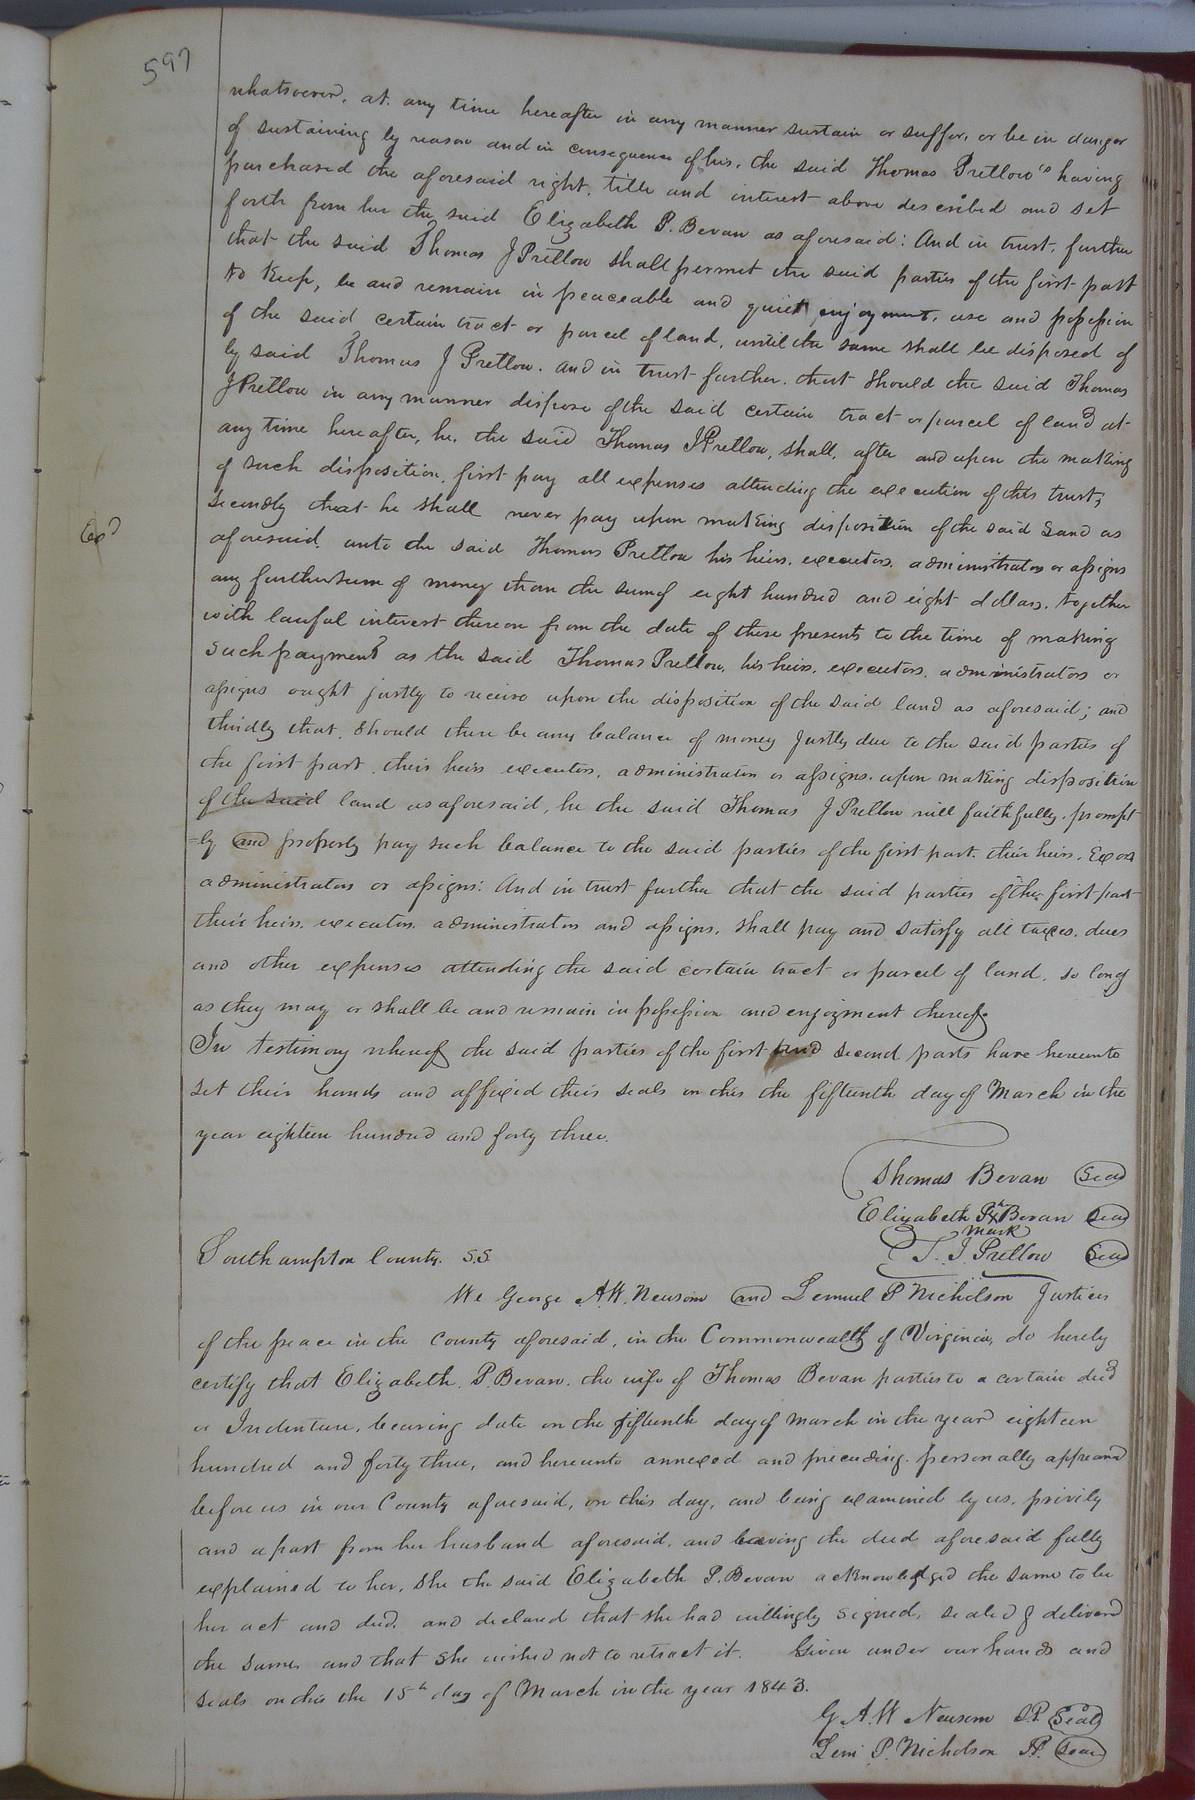 597
whatsoever, at any time hereafter in any manner sustain or suffer, or be in danger
of sustaining by reason and in consequence of his, the said Thomas Pretlow's having
purchased the aforesaid right, title and interest above described and set
forth from her the said Elizabeth P. Bevan as aforesaid: And in trust, further
that the said Thomas J Pretlow shall permit the said parties of the first part
to keep, be and remain in peaceable and quiet enjoyment, use and possession
of the said certain tract or parcel of land, until the same shall be disposed of
by said Thomas J Pretlow. And in trust further, that should the said Thomas
J Pretlow in any manner dispose of the said certain tract or parcel of land at
any time hereafter, he, the said Thomas J Pretlow, shall, after and upon the making
of such disposition, first pay all expenses attending the execution of this trust;
Secondly that he shall never pay upon making disposition of the said Land as
aforesaid, unto the said Thomas Pretlow his heirs, executors, administrators or assigns
any further sum of money than the sum of eight hundred and eight dollars, together
with lawful interest thereon from the date of these presents to the time of making
Such payment as the said Thomas Pretlow, his heirs, executors, administrators or
assigns ought justly to receive upon the disposition of the said land as aforesaid; and
thirdly that, should there be any balance of money justly due to the said parties of
the first part, their heirs executors, administrators or assigns upon making disposition
of the said land as aforesaid, he the said Thomas J Pretlow will faithfully, prompt
-ly and properly pay such balance to the said parties of the first part, their heirs, Exors
administrators or assigns: And in trust further that the said parties of the first part
their heirs, executors, administrators and assigns, shall pay and satisfy all taxes, dues
and other expenses attending the said certain tract or parcel of land, so long
as they may or shall be and remain in possession and enjoyment thereof.
In testimony whereof the said parties of the first and second parts have hereunto
set their hands and affixed their seals on this the fifteenth day of March in the
year eighteen hundred and forty three.
Thomas Bevan Seal
Elizabeth P. X Bevan Seal
mark
T. J. Pretlow Seal
Southampton County. S.S.
We George A.W. Newsom and Lemuel P Nicholson Justices
of the peace in the County aforesaid, in the Commonwealth of Virginia, do hereby
certify that Elizabeth P. Bevan, the wife of Thomas Bevan parties to a certain deed
or Indenture, bearing date on the fifteenth day of March in the year eighteen
hundred and forty three, and hereunto annexed and preceding, personally appeared
before us in our County aforesaid, on this day, and being examined by us, privily
and apart from her husband aforesaid, and having the deed aforesaid fully
explained to her, She the said Elizabeth P. Bevan acknowledged the same to be
her act and deed, and declared that she had willingly signed, sealed & delivered
the same, and that she wished not to retract it. Given under our hands and
seals on this the 15th day of March in the year 1843.
G. A. W Newsom J.P. Seal
Lem P. Nicholson JP. Seal